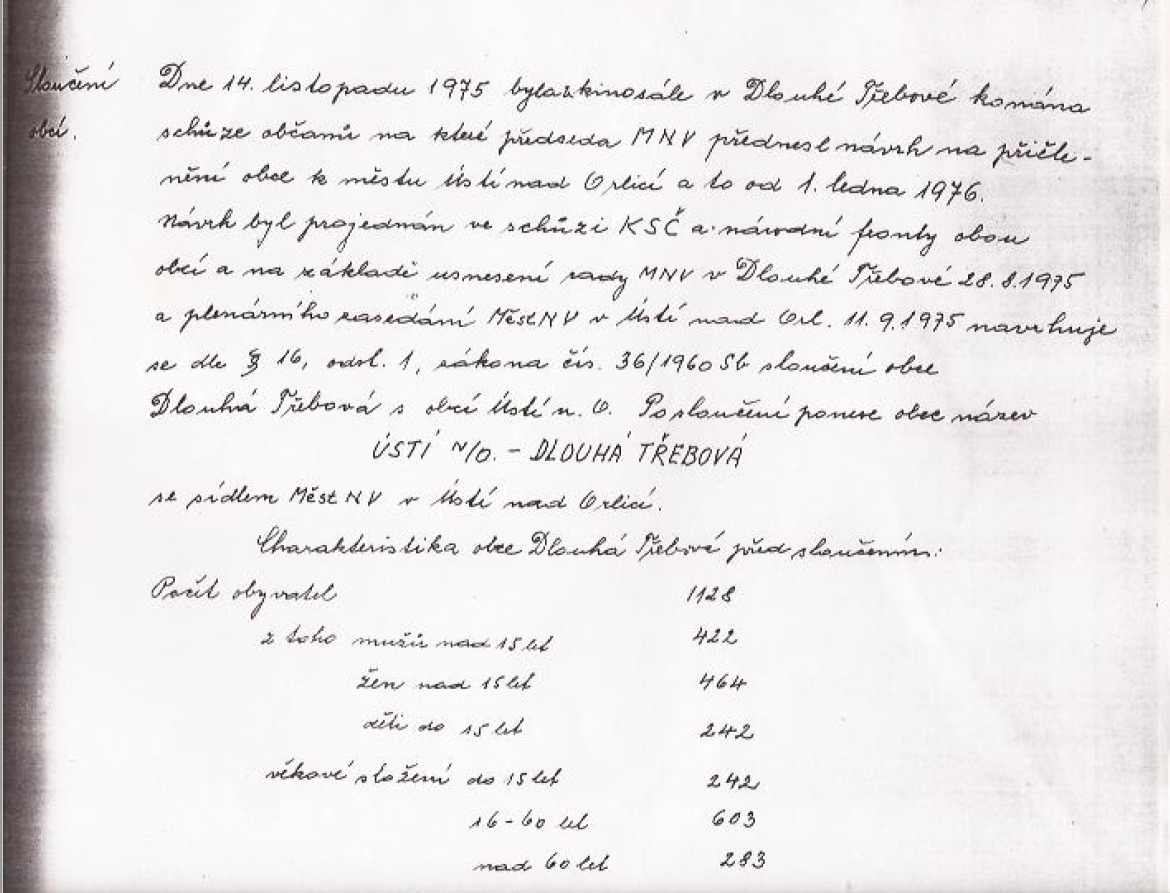 Sloučení
obcí.
Dne 14. listopadu 1975 byla v kinosále v Dlouhé Třebové konána
schůze občanů na které předseda MNV přednesl návrh na přičle-
nění obce k městu Ústí nad Orlicí a to od 1. ledna 1976.
Návrh byl projednán ve schůzi KSČ a národní fronty obou
obcí a na základě usnesení rady MNV v Dlouhé Třebové 28.8.1975
a plenárního zasedání MěstNV v Ústí nad Orl. 11.9.1975 navrhuje
se dle § 16, odst. 1, zákona čís. 36/1960 Sb sloučení obce
Dlouhá Třebová s obcí Ústí n. O. Po sloučení ponese obec název
ÚSTÍ N/O. - DLOUHÁ TŘEBOVÁ
se sídlem MěstNV v Ústí nad Orlicí.
Charakteristika obce Dlouhá Třebové před sloučením:
Počít obyvatel 1128
z toho mužů nad 15 let 422
žen nad 15 let 464
děti do 15 let 242
věkové složení do 15 let 242
16-60 let 603
nad 60 let 283